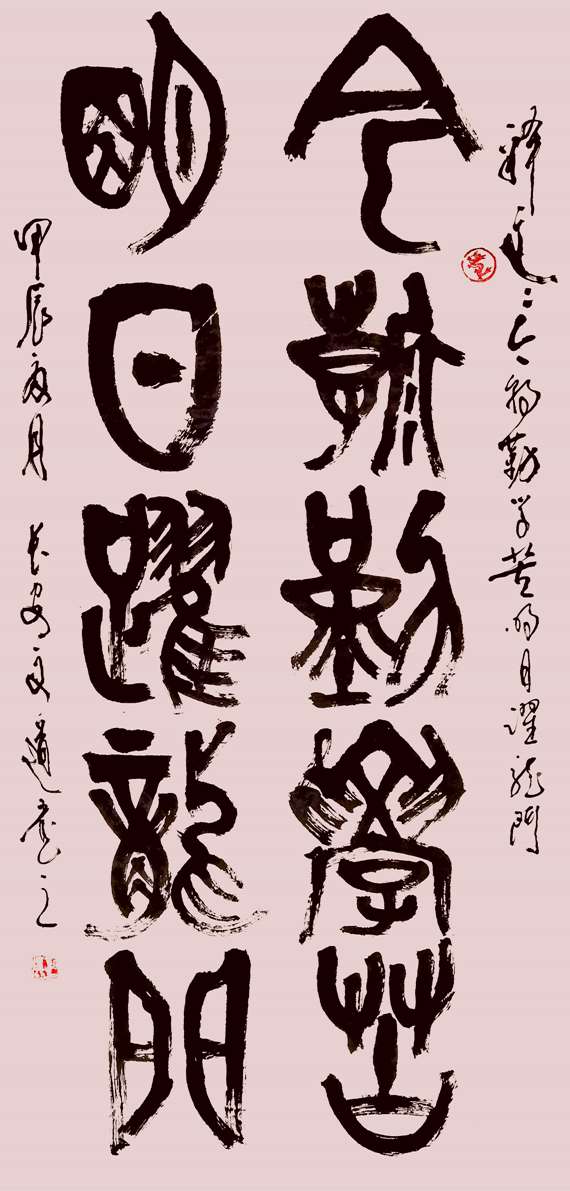 釋：今朝勤学苦明日躍龍門
今朝勤學苦
明日躍龍門
甲辰夏月 長安文道之